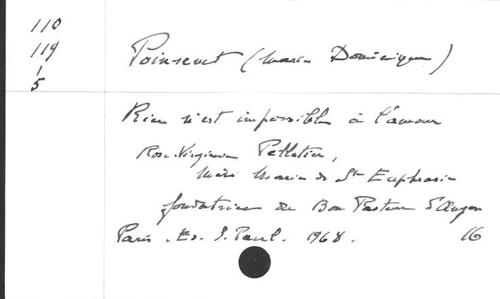 110
119
1
5
Poinsenet (Marie Dominique)
Rien n'est impossible à l'amour
Rose-Virginie Pelletier,
Mère Marie de Ste Euphrasie
fondatrice du Bon Pasteur d'Angers
Paris. Ed. S. Paul. 1968. 16